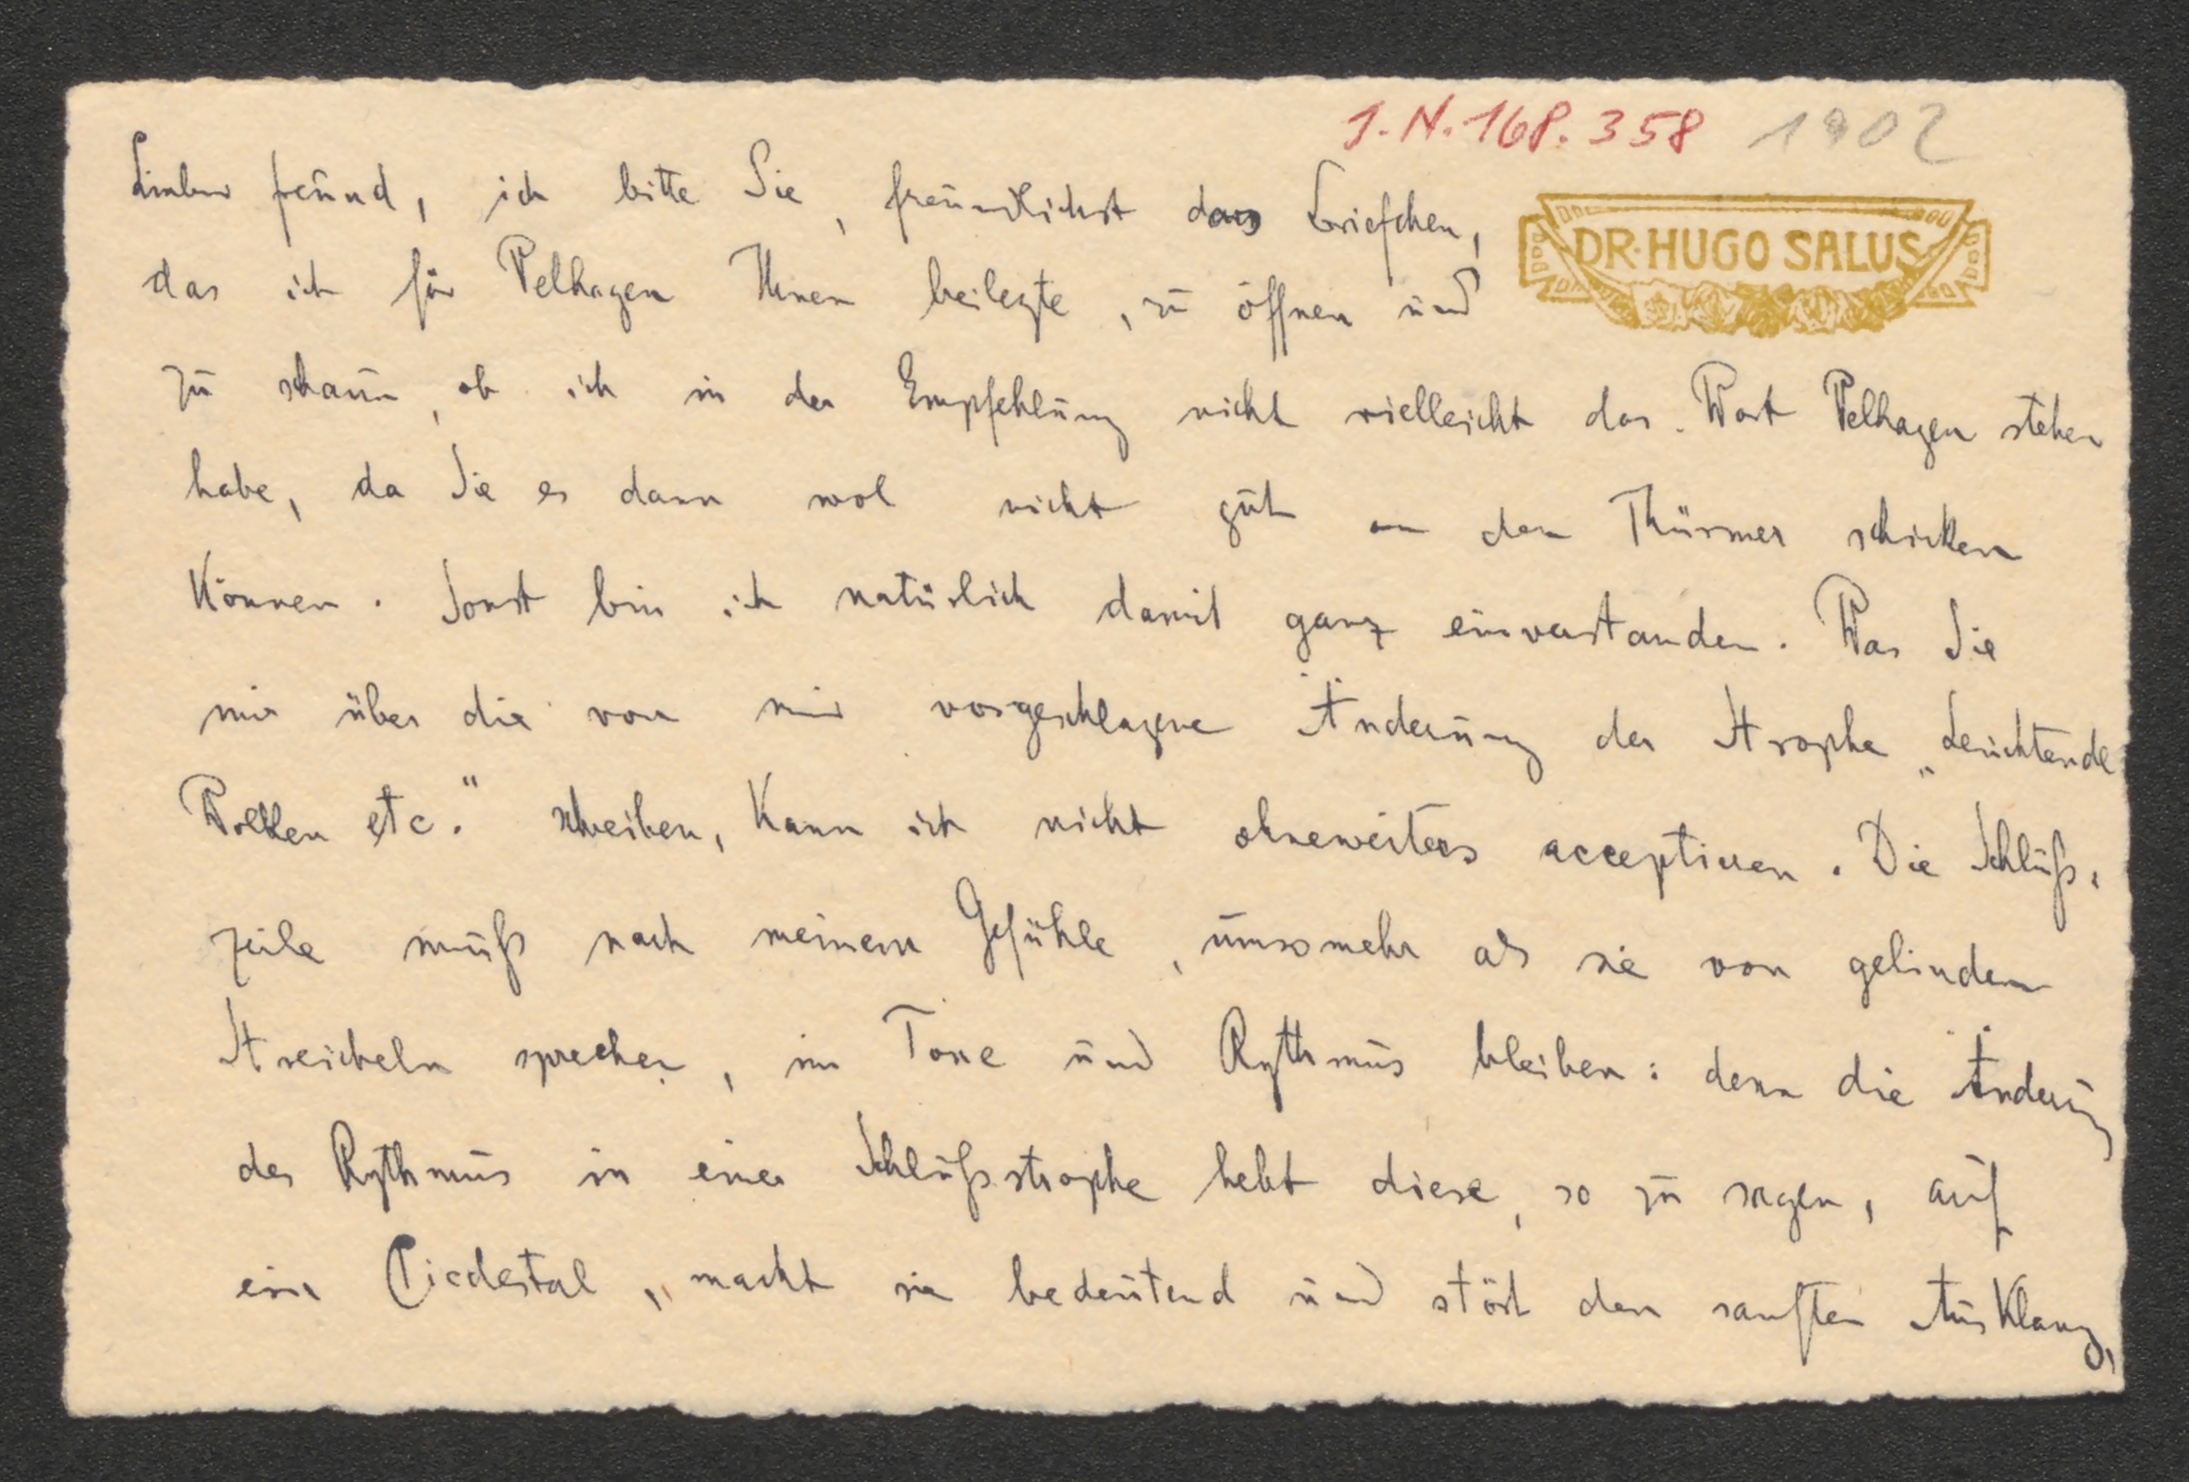 J.N.168.358 1902
DR. HUGO SALUS
Lieber freund, ich bitte Sie, freundlichst das Briefchen,
das ich für Velhagen Ihnen beilegte, zu öffnen und
zu schaun, ob ich in der Empfehlung nicht vielleicht das Wort Velhagen stehen
habe, da Sie es dann wol nicht gut an den Thürmer schicken
können. Sonst bin ich natürlich damit ganz einverstanden. Was Sie
mir über die von mir vorgeschlagene Änderung der Strophe „Leuchtende
Wolken etc." schreiben, kann ich nicht ohneweiters acceptieren. Die Schluß-
zeile muß nach meinem Gefühle, umsomehr als sie von gelindem
Streicheln sprechen, im Tone und Rythmus bleiben: denn die Änderung
des Rythmus in einer Schlußstrophe hebt diese, so zu sagen, auf
ein Piedestal, macht sie bedeutend und stört den sanften Ausklang,